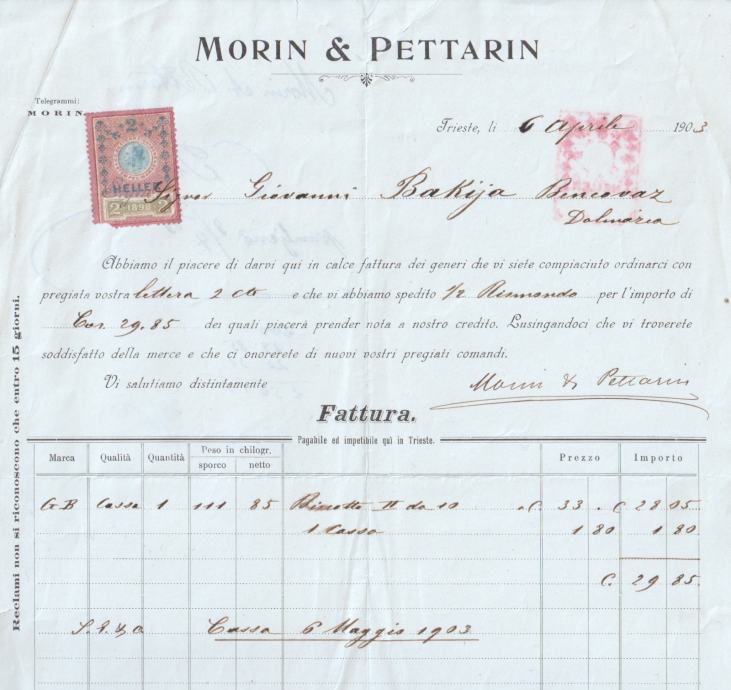 MORIN & PETTARIN
Telegrammi:
MORIN
Trieste, li 6 Aprile 1903
2
HELLER
2 1898 2
Signor Giovanni Bakija Bencovaz
Dalmazia
Abbiamo il piacere di darvi qui in calce fattura dei generi che vi siete compiaciuto ordinarci con
pregiata vostra lettera 2 e che vi abbiamo spedito per l'importo di
Cor. 29.85 dei quali piacerà prender nota a nostro credito. Lusingandoci che vi troverete
soddisfatto della merce e che ci onorerete di nuovi vostri pregiati comandi.
Vi salutiamo distintamente
Morin & Pettarin
Fattura.
Pagabile ed impetibile quì in Trieste.
Marca Qualità Quantità Peso in chilogr. sporco netto Prezzo Importo
GB Cassa 1 111 85 II da 10 C. 33 . C 28 05
1 Cassa 1 80 1 80
C. 29 85
S. E. & O. Cassa 6 Maggio 1903
Reclami non si riconoscono che entro 15 giorni.